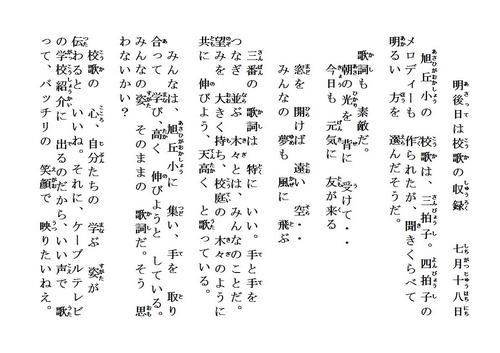 明後日は校歌の収録　七月十八日
旭丘小の　校歌は、三拍子。四拍子の
メロディーも　作られたが、聞きくらべて
明るい　方を　選んだそうだ。
歌詞も　素敵だ。
朝の光を　背に　受けて・・
今日も　元気に　友が来る
窓を　開けば　遠い　空・・
みんなの　夢も　風に　飛ぶ
三番の　歌詞は　特に　いい。手と手を
つなぎ　並ぶ　木々とは、みんなのことだ。
望みを　大きく持ち、校庭の　木々のように
共に　伸びよう、天高く　と歌っている。
みんなは、旭丘小に　集い、手を　取り
合って　学び、高く　伸びようと　している。
みんなの　姿が　そのままの　歌詞だ。そう　思
わないかい？
校歌の　心　自分たちの　学ぶ　姿が
伝わると　いいね。それに、ケーブルテレビ
の　学校紹介に　出るのだから、いい声で　歌
って、バッチリの　笑顔で　映りたいねえ。